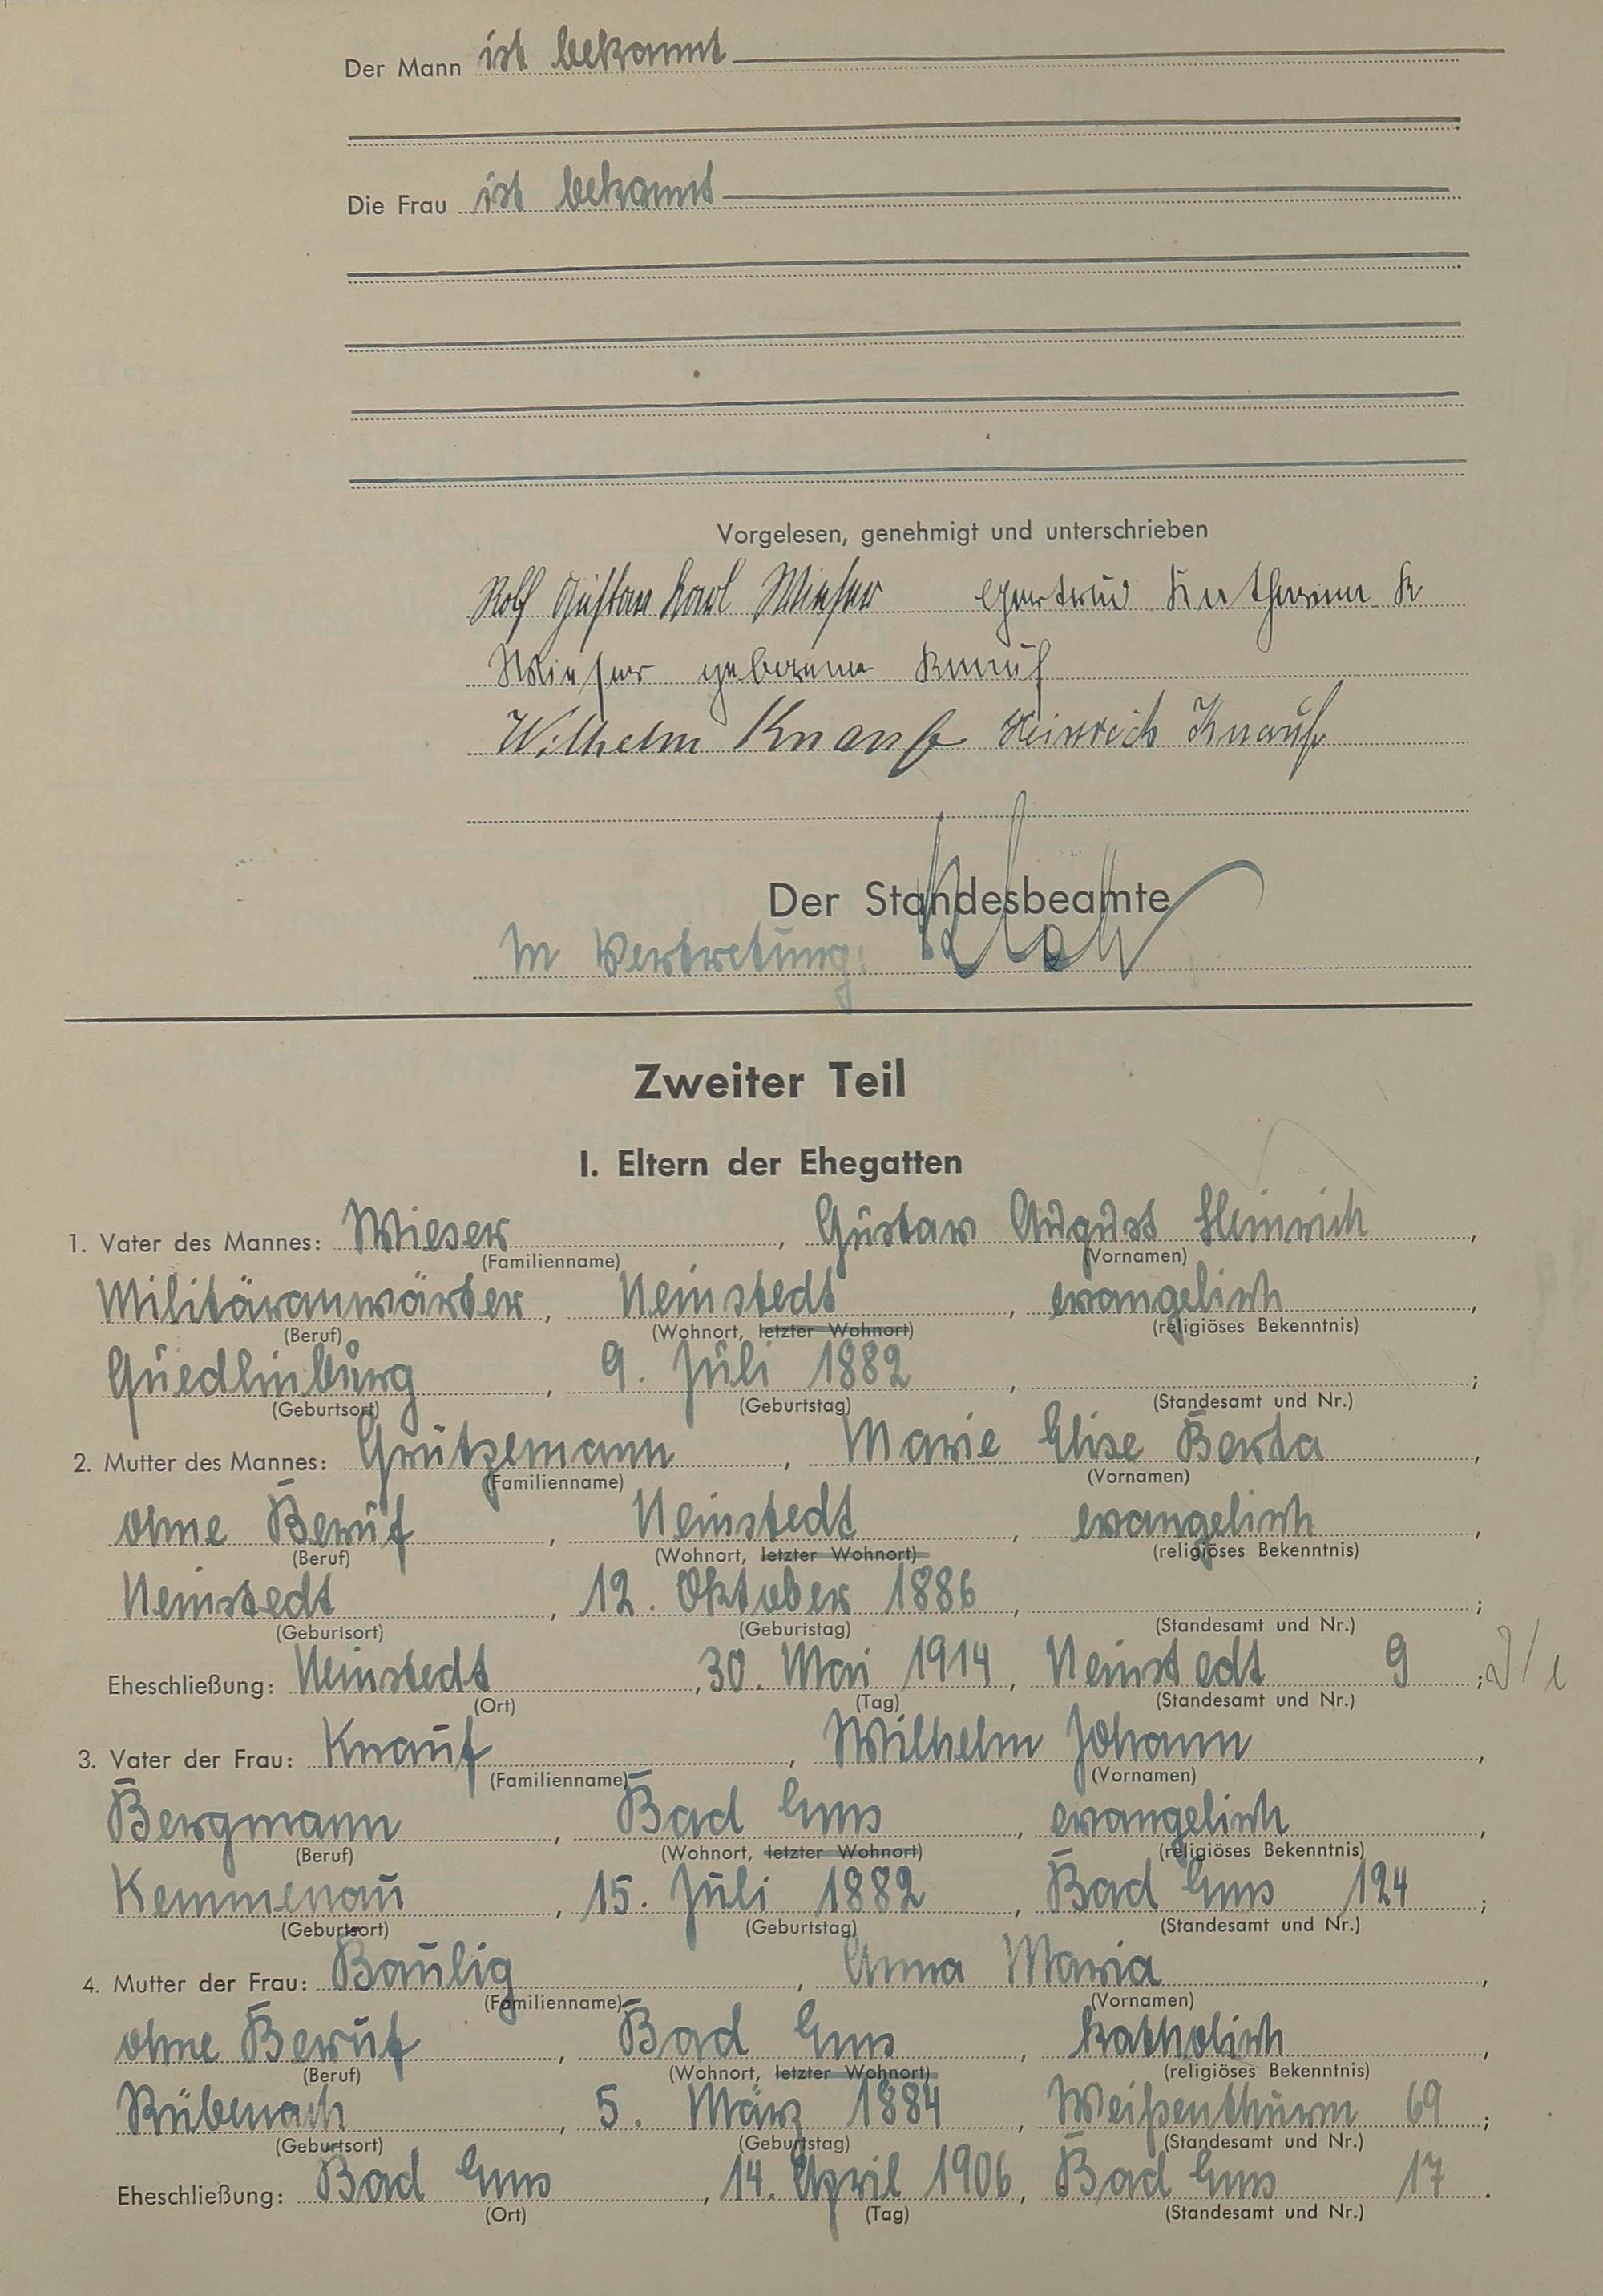 Der Mann ist bekannt
Die Frau ist bekannt
Vorgelesen, genehmigt und unterschrieben
Rolf Gustav Karl Wieser Gertrud Katharina
Wieser geborene Knauf
Wilhelm Knauf Heinrich Knauf
Der Standesbeamte
In Vertretung:
Zweiter Teil
I. Eltern der Ehegatten
1. Vater des Mannes: Wieser, Gustav August Heinrich,
(Familienname) (Vornamen)
Militäranwärter, Neinstedt, evangelisch,
(Beruf) (Wohnort, letzter Wohnort) (religiöses Bekenntnis)
Quedlinburg, 9. Juli 1882, ;
(Geburtsort) (Geburtstag) (Standesamt und Nr.)
2. Mutter des Mannes: Grützemann, Marie Elise Berta,
(Familienname) (Vornamen)
ohne Beruf, Neinstedt, evangelisch,
(Beruf) (Wohnort, letzter Wohnort) (religiöses Bekenntnis)
Neinstedt, 12. Oktober 1886, ;
(Geburtsort) (Geburtstag) (Standesamt und Nr.)
Eheschließung: Neinstedt, 30. Mai 1914, Neinstedt 9;
(Ort) (Tag) (Standesamt und Nr.)
3. Vater der Frau: Knauf, Wilhelm Johann,
(Familienname) (Vornamen)
Bergmann, Bad Ems, evangelisch,
(Beruf) (Wohnort, letzter Wohnort) (religiöses Bekenntnis)
Kemmenau, 15. Juli 1882, Bad Ems 124;
(Geburtsort) (Geburtstag) (Standesamt und Nr.)
4. Mutter der Frau: Baulig, Anna Maria,
(Familienname) (Vornamen)
ohne Beruf, Bad Ems, katholisch,
(Beruf) (Wohnort, letzter Wohnort) (religiöses Bekenntnis)
Rübenach, 5. März 1884, Weißenthurm 69;
(Geburtsort) (Geburtstag) (Standesamt und Nr.)
Eheschließung: Bad Ems, 14. April 1906, Bad Ems 17.
(Ort) (Tag) (Standesamt und Nr.)